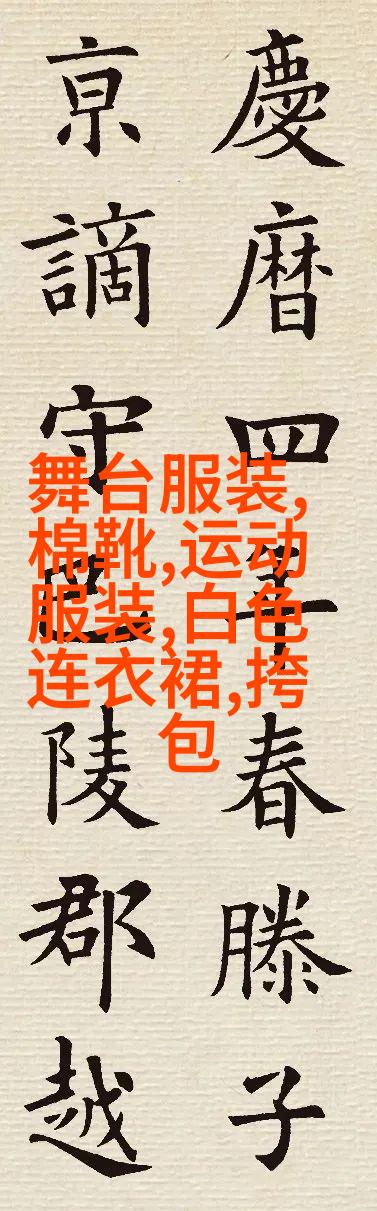 慶暦四年春滕子
亰謫守巴陵郡越
舞台服装,
棉靴,运动
服装,白色
连衣裙,挎
包